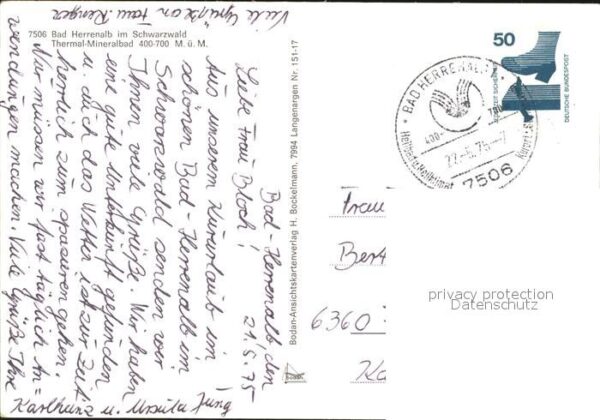 7506 Bad Herrenalb im Schwarzwald
Thermal-Mineralbad 400-700 M. ü. M.
Bad-Herrenalb den
21.5.75
Liebe Frau Bloch!
Aus unserem Kururlaub im
schönen Bad-Herrenalb im
Schwarzwald senden wir
Ihnen viele Grüße. Wir haben
eine gute Unterkunft gefunden
u. auch das Wetter ist zur Zeit
herrlich zum spazieren gehen.
Nur müssen wir fast täglich An=
wendungen machen. Viele Grüße Ihre
Karlheinz u. Ursula Jung
Viele Grüße an Frau Renger
Bodan-Ansichtskartenverlag H. Bockelmann, 7994 Langenargen Nr. 151-17
50
DEUTSCHE BUNDESPOST
BAD HERRENALB
400-700
22.-5.75-7
7506
Frau
Bert
6360
privacy protection
Datenschutz